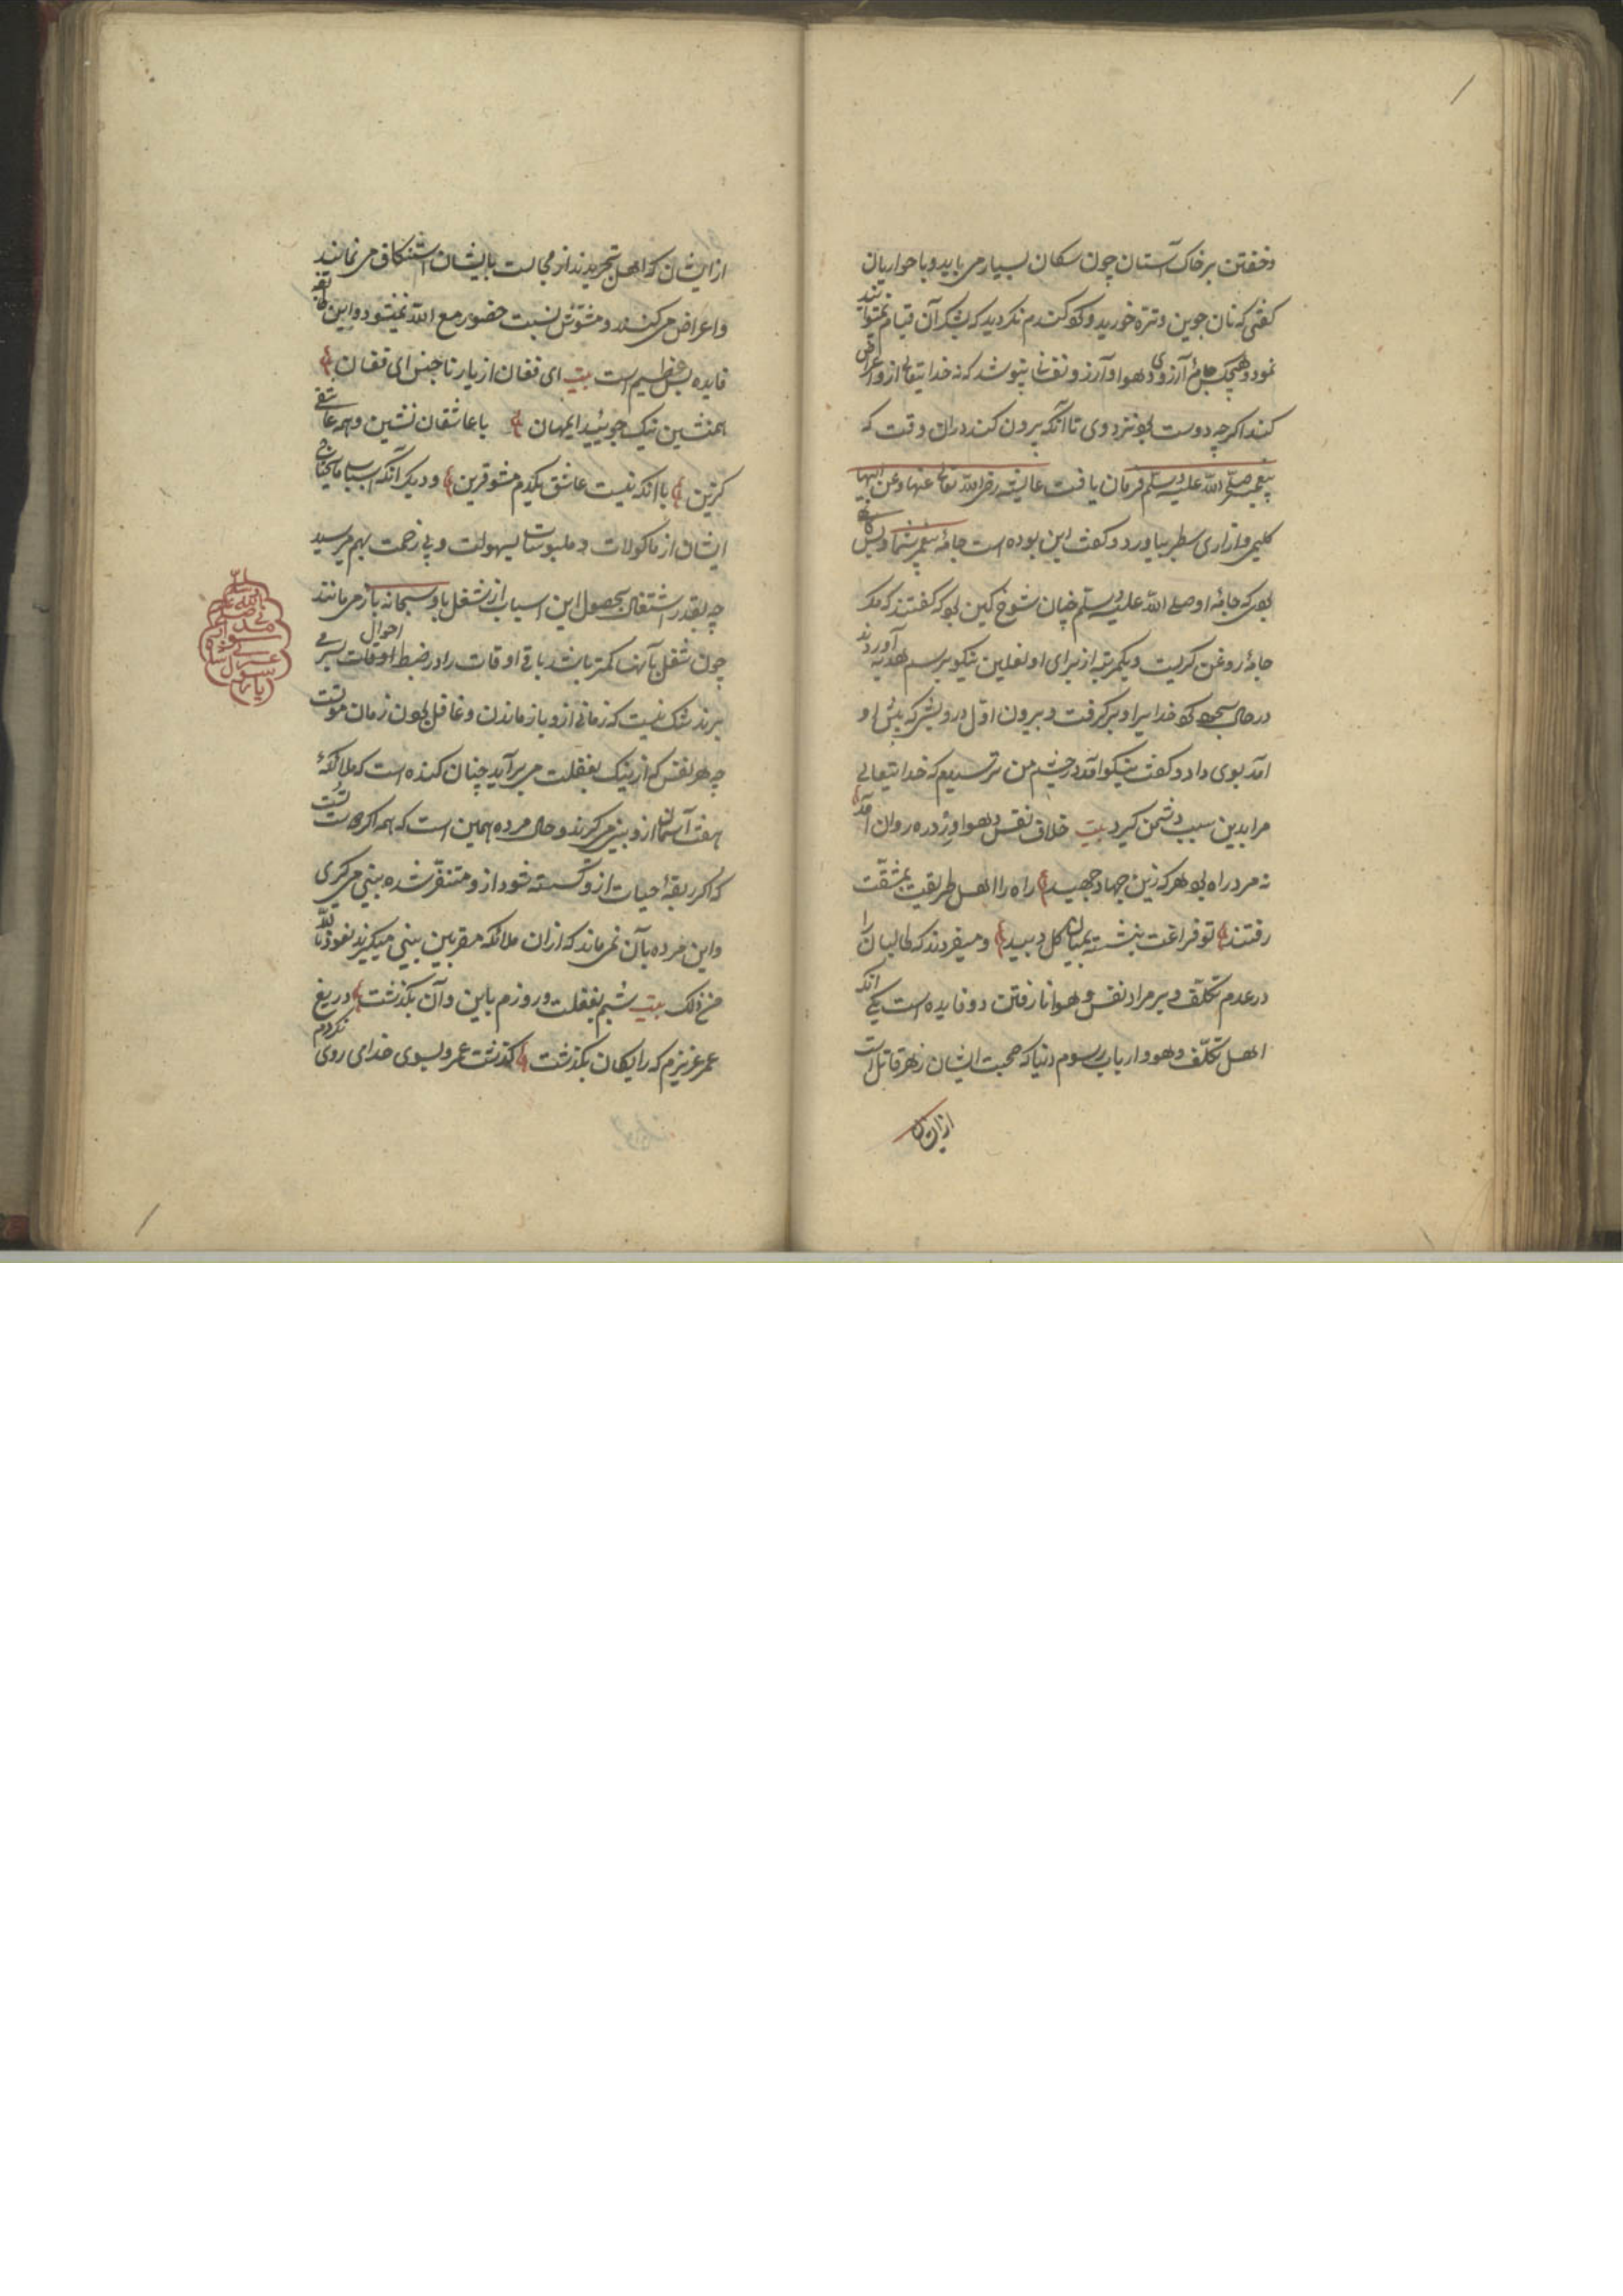 و خفتن بر خاک آستان چون سکان بسیار می باید و با حواریان
کفتی که نان جوین و تره خورید و کرد کندم نکردید که بشکر آن قیام نمتوانید
نمود و هیچکس جامهٔ آرزوی و هوا و آرزو نفسانی نپوشد که نه خدایتعالی ازو اعراض
کند اکرچه دوست بود نزد وی تا آنکه بیرون کند در آن وقت که
پیغمبر صلی الله علیه وسلم فرمان یافت عایشه رضی الله تعالی عنها وعن ابیها
کلیمی و ازاری سطبر بیاورد و کفت این بوده است جامهٔ پیغمبر شما و بس
بودی که جامهٔ او صلی الله علیه وسلم چنان شوخ کین بود که کفتند که مکر
جامهٔ روغن کریست و یکمرتبه از برای او نعلین نیکو برسم هدیه آوردند
در حال سجده کرد خدایرا و بر کرفت و بیرون اول درویشی که پیش او
آمد بوی داد و کفت نیکو آمد در چشم من ترسیدم که خدایتعالی
مرا بدین سبب دشمن کیرد بیت خلاف نفس و هوا ورز در ره روان آمد
نه مرد راه بود هر که زین جهاد جهید راه را اهل طریقت بمشقت
رفتند تو فراغت بنشسته بمیان کل و بید و میفرمودند که طالبان را
در عدم تکلف و بر مراد نفس و هوا نا رفتن دو فایده است یکی آنکه
اهل تکلف و هوا و ارباب رسوم دنیا که صحبت ایشان زهر قاتل است
از ایشان
از ایشان که اهل تجریدند از مجالست بایشان استنکاف می نمایند
و اعراض می کنند و مشوش نسبت حضور مع الله نمیشود و این
فایده بس عظیم است بیت ای فغان از یار ناجنس ای فغان
همنشین نیک جوئید ای مهان با عاشقان نشین و همه عاشقی
کزین با آنکه نیست عاشق یکدم مشو قرین و دیکر آنکه اسباب مایحتاج
ایشان از ماکولات و ملبوسات بسهولت و بی زحمت بهم میرسد
چه بقدر اشتغال بحصول این اسباب از شغل باو سبحانه باز می مانند
چون شغل بآنها کمتر باشد باقی اوقات را در ضبط احوال اوقات بسر می
برند شک نیست که زمانی ازو باز ماندن و غافل بودن زمان موتست
چه هر نفس که از نیک بغفلت می برآید چنان کنده است که ملائکهٔ
هفت آسمان ازو بینی می کیرند و حال مرده همین است که همه اکراهست
که اکر ربقهٔ حیات ازو کسسته شود ازو متنفر شده بینی می کیری
و این مرده بآن نمی ماند که ازان ملائکه مقربین بینی میکیرند نعوذ بالله
من ذلک بیت شبم بغفلت و روزم باین و آن بکذشت دریغ
عمر عزیزم که رایکان بکذشت کذشت عمر و بسوی خدای روی نکردم